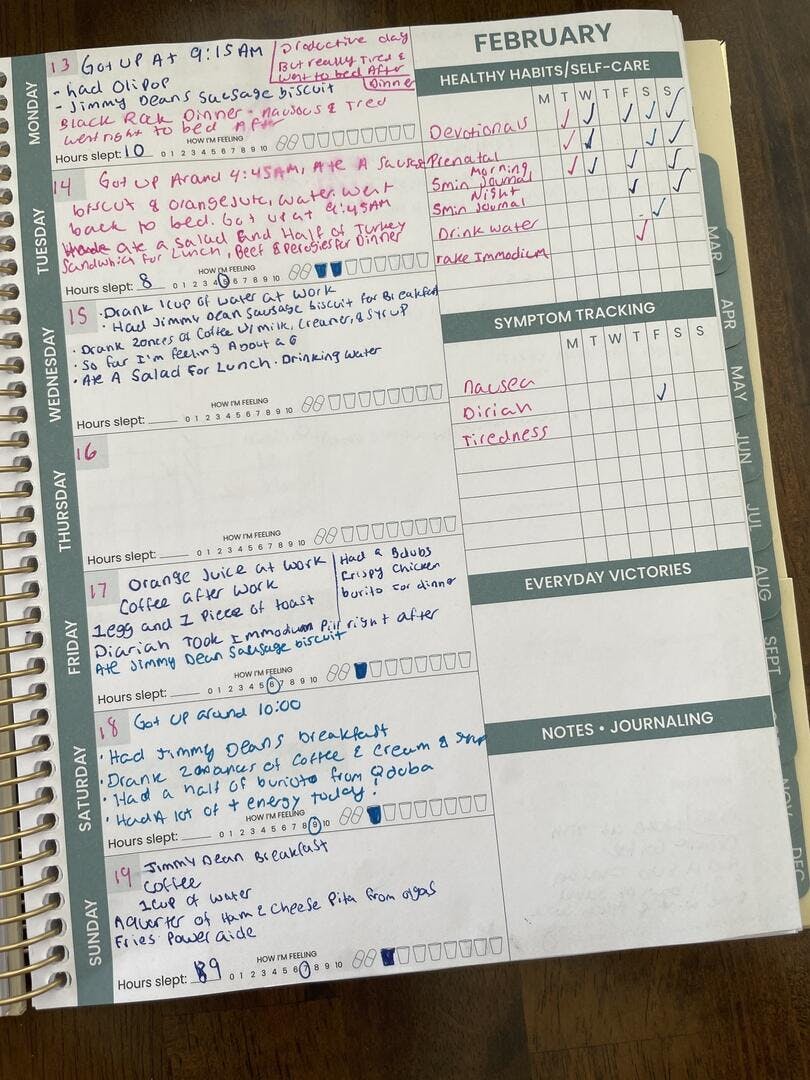 FEBRUARY
MONDAY
13 Got up At 9:15AM
- had Olipop
- Jimmy Deans Sausage biscuit
Productive day
But really Tired &
went to bed After
Dinner
Black Rack Dinner - Nausous & Tired
went right to bed After
Hours slept: 10
HOW I'M FEELING
0 1 2 3 4 5 6 7 8 9 10
TUESDAY
14 Got up Around 4:45AM, Ate A Sausage
biscut & orange jute, water. went
back to bed. Got up at 9:45AM
ate a salad and Half of Turkey
Sandwhich for Lunch, Beef & Perogies for Dinner
Hours slept: 8
HOW I'M FEELING
0 1 2 3 4 5 6 7 8 9 10
WEDNESDAY
15 · Drank 1 cup of water at work
· Had Jimmy Dean Sausage biscuit for Breakfast
· Drank 20nces of Coffee w/ milk, Creamer, & Syrup
· So far I'm feeling About a 6
· Ate A Salad For Lunch · Drinking water
Hours slept:
HOW I'M FEELING
0 1 2 3 4 5 6 7 8 9 10
THURSDAY
16
Hours slept:
HOW I'M FEELING
0 1 2 3 4 5 6 7 8 9 10
FRIDAY
17 Orange Juice at work
Coffee after work
1 egg and 1 Piece of toast
Diariah Took Immodium Pill right after
Ate Jimmy Dean Sausage biscuit
Had a Bdubs
Crispy Chicken
burito for dinner
Hours slept:
HOW I'M FEELING
0 1 2 3 4 5 6 7 8 9 10
SATURDAY
18 Got up around 10:00
· Had Jimmy Deans breakfast
· Drank 20 ounces of Coffee & Cream & Syrup
· Had a half of burioto from Qdoba
· Had A lot of + energy today!
Hours slept:
HOW I'M FEELING
0 1 2 3 4 5 6 7 8 9 10
SUNDAY
19 Jimmy Dean Breakfast
Coffee
1 cup of water
A quarter of Ham & Cheese Pita from olgas
Fries Poweraide
Hours slept: 9
HOW I'M FEELING
0 1 2 3 4 5 6 7 8 9 10
HEALTHY HABITS/SELF-CARE
M T W T F S S
Devotionals
Prenatal
Morning
5min Journal
Night
5min Journal
Drink water
Take Immodium
SYMPTOM TRACKING
M T W T F S S
Nausea
Diriah
Tiredness
EVERYDAY VICTORIES
NOTES • JOURNALING
MAR
APR
MAY
JUN
JUL
AUG
SEPT
NOV
DEC